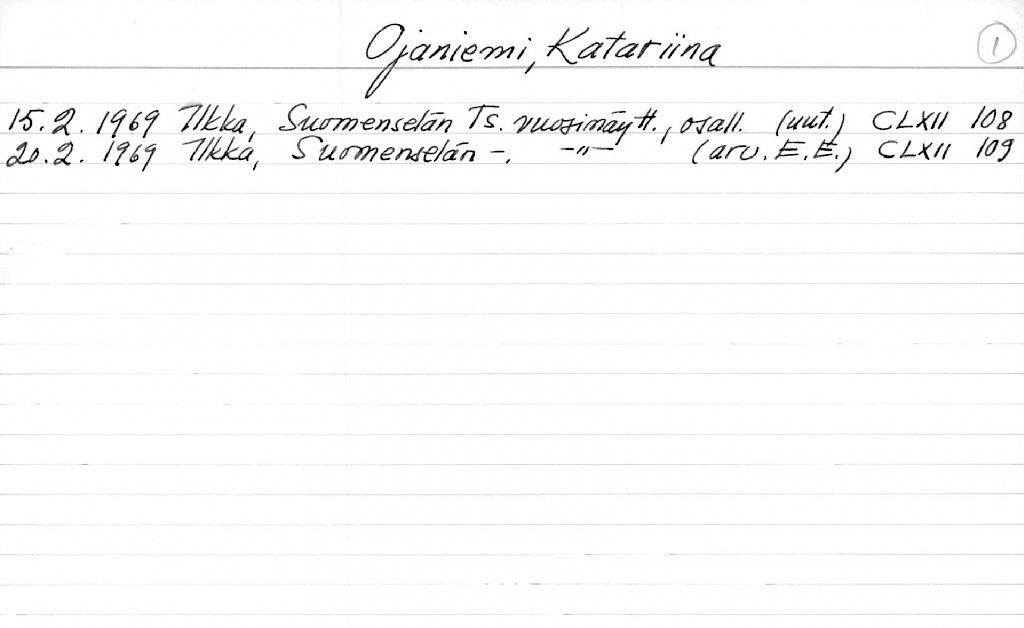 Ojaniemi, Katariina 1
15.2.1969 Ilkka, Suomenselän Ts. vuosinäytt., osall. (uut.) CLXII 108
20.2.1969 Ilkka, Suomenselän -. -"- (arv. E.E.) CLXII 109